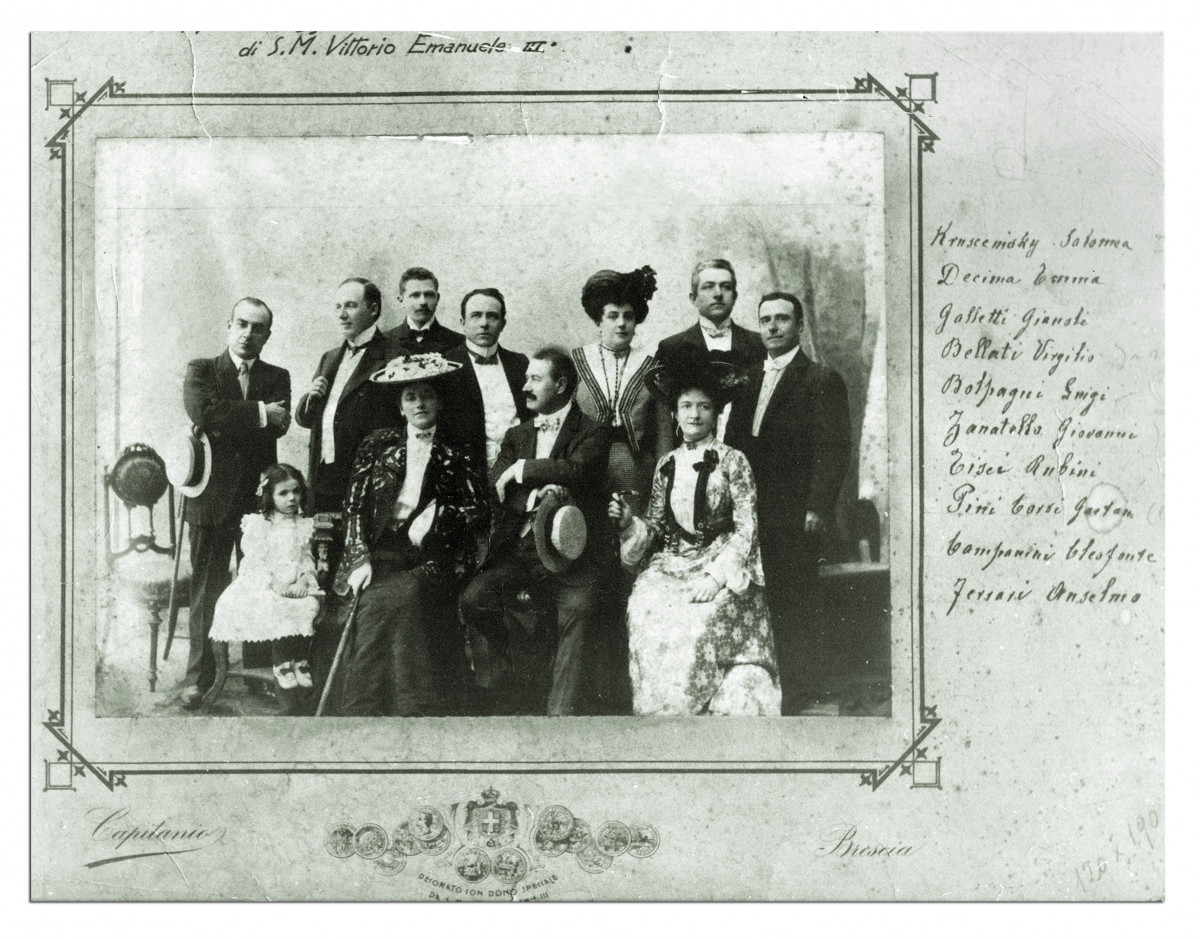 di S.M. Vittorio Emanuele III.
Krusceniski Salomea
Decima Emma
Galletti Gianoli
Bellati Virgilio
Bolpagni Luigi
Zanatello Giovanni
Tisci Rubini
Pini Corsi Gaetano
Campanini Cleofonte
Ferrari Anselmo
Capitanio
Brescia
DECORATO CON DONO SPECIALE
DA S.
120 x 190